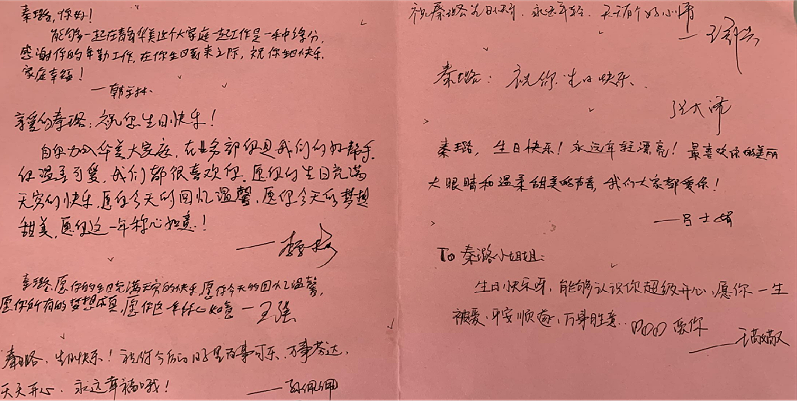 秦璐,你好!
能够一起在静华美这个大家庭一起工作是一种缘分,
感谢你的辛勤工作,在你生日到来之际,祝你生日快乐,
家庭幸福!
亲爱的秦璐:祝您生日快乐!
自你加入华美大家庭,在业务部你是我们的好帮手,
你温柔可爱,我们都很喜欢你,愿你的生日充满
无穷的快乐,愿你今天的回忆温馨,愿你今天的梦想
甜美,愿你这一年称心如意!
秦璐,愿你的生日充满无穷的快乐,愿你今天的回忆温馨,
愿你所有的梦想成真,愿你这一年称心如意 — 王强
秦璐,生日快乐!祝你今后的日子里百事可乐,万事芬达,
天天开心,永远幸福哦!
— 孙佩佩
祝秦璐生日快乐,永远年轻,天天有个好心情
秦璐:祝你生日快乐.
秦璐,生日快乐!永远年轻漂亮!最喜欢你的美丽
大眼睛和温柔甜美的声音,我们大家都爱你!
To 秦璐小姐姐:
生日快乐呀,能够认识你超级开心,愿你一生
被爱,平安顺遂,万事胜意..口口口 爱你